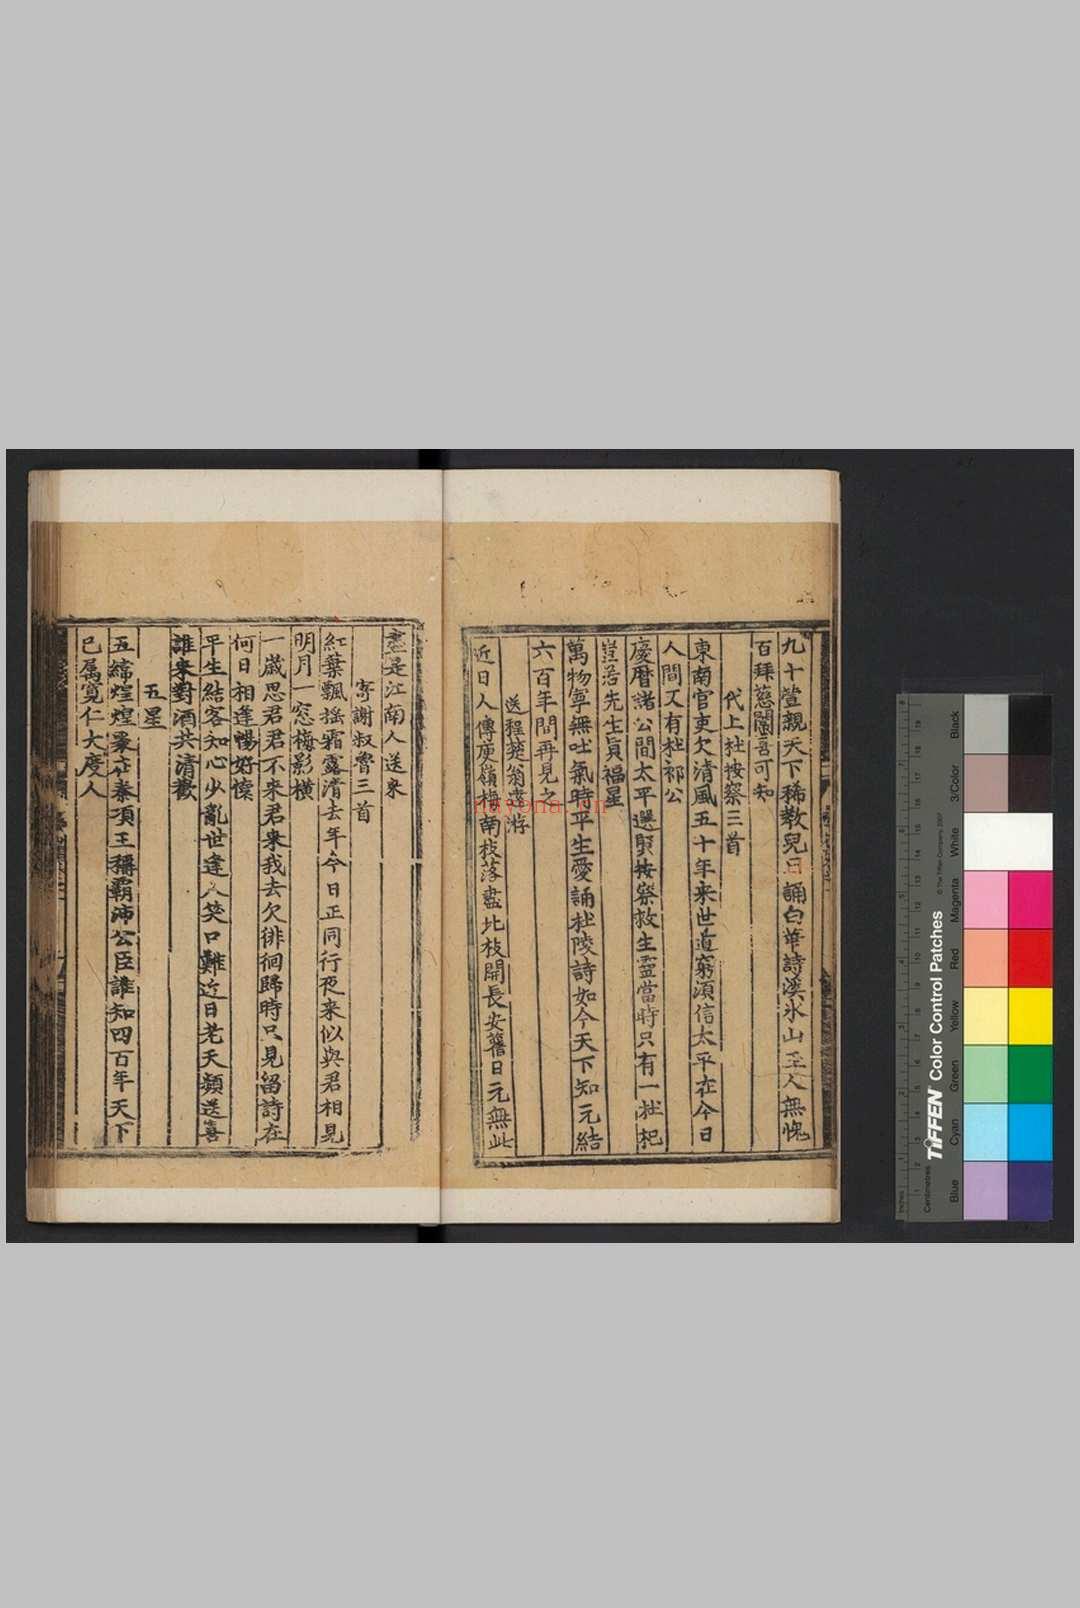 九十萱親天下稀教兒日誦白華詩溪冰山玉人無愧
百拜慈闈喜可知
代上杜按察三首
東南官吏欠清風五十年来世道窮須信太平在今日
人間又有杜祁公
慶曆諸公間太平選賢按察救生靈當時只有一杜杞
豈若先生眞福星
萬物寧無吐氣時平生愛誦杜陵詩如今天下知元結
六百年間再見之
送程楚翁遠游
近日人傳庾嶺梅南枝落盡北枝開長安舊日元無此
盡是江南人送来
寄謝叔魯三首
紅葉飄揺霜露清去年今日正同行夜来似與君相見
明月一窓梅影横
一歲思君君不来君来我去欠徘徊歸時只見留詩在
何日相逢暢好懷
平生結客知心少亂世逢人笑口難近日老天頻送喜
誰来對酒共清歡
五星
五緯煌煌聚在秦項王稱霸沛公臣誰知四百年天下
已属寛仁大度人
nayona.cn
TIFFEN Color Control Patches
© The Tiffen Company, 2007
Inches
Centimetres
Blue
Cyan
Green
Yellow
Red
Magenta
White
3/Color
Black